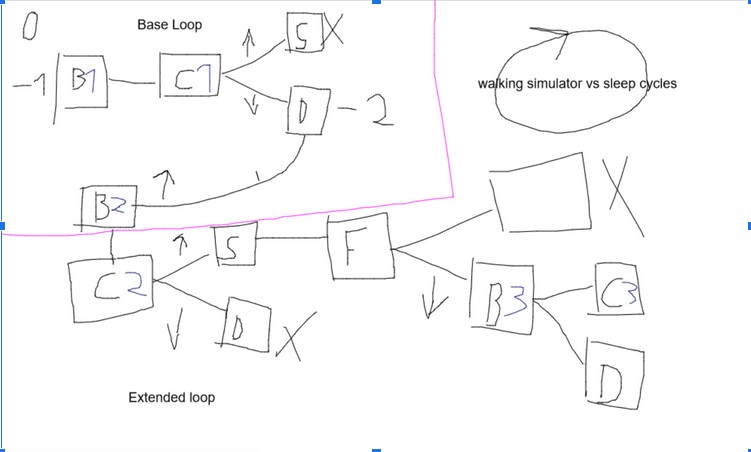 0
Base Loop
S X
-1 B1 C1
D -2
walking simulator vs sleep cycles
B2
X
S F
C2
D X
B3 C3
D
Extended loop